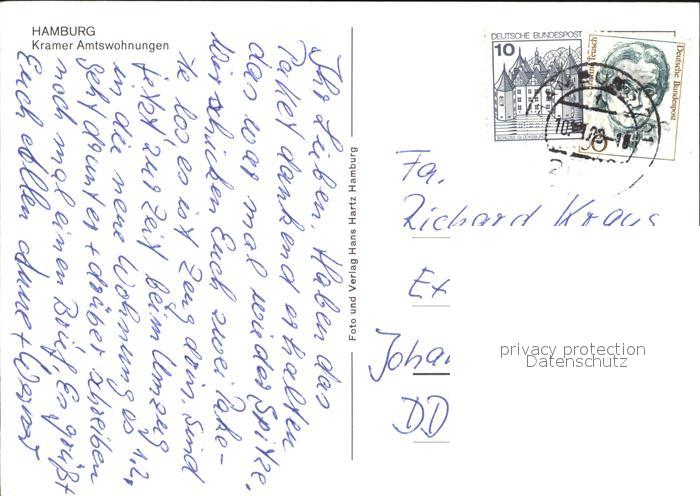 HAMBURG
Kramer Amtswohnungen
Ihr Lieben, Haben das
Paket dankend erhalten
das war mal wieder Spitze,
Wir schicken Euch zwei Pake-
te los, es ist Zeug drin. Sind
jetzt zur Zeit beim Umzug
in die neue Wohnung es
geht drunter + drüber schreiben
noch mal einen Brief. Es grüßt
Euch allen + Werner
Foto und Verlag Hans Hartz Hamburg
DEUTSCHE BUNDESPOST
10
SCHLOSS GLÜCKSBURG
Deutsche Bundespost
Teusch
50
Fa.
Richard Kraus
Ex
Johan
DD
privacy protection
Datenschutz